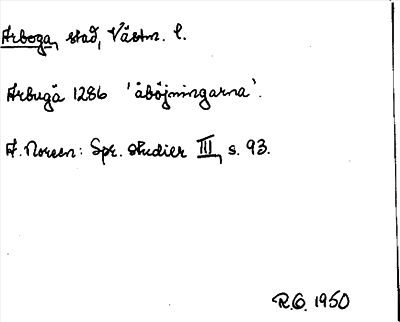 Arboga, stad, Västm. l.
Arbugä 1286 'åböjningarna'.
A. Noreen: Spr. studier III, s. 93.
R.G. 1950